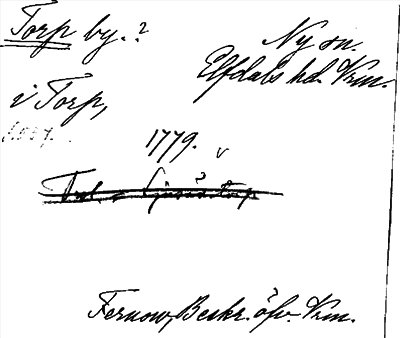 Torp by.?
Ny sn.
Elfdals hd. Vrm.
i Torp,
1779.
Fernow, Beskr. öfv. Vrm.